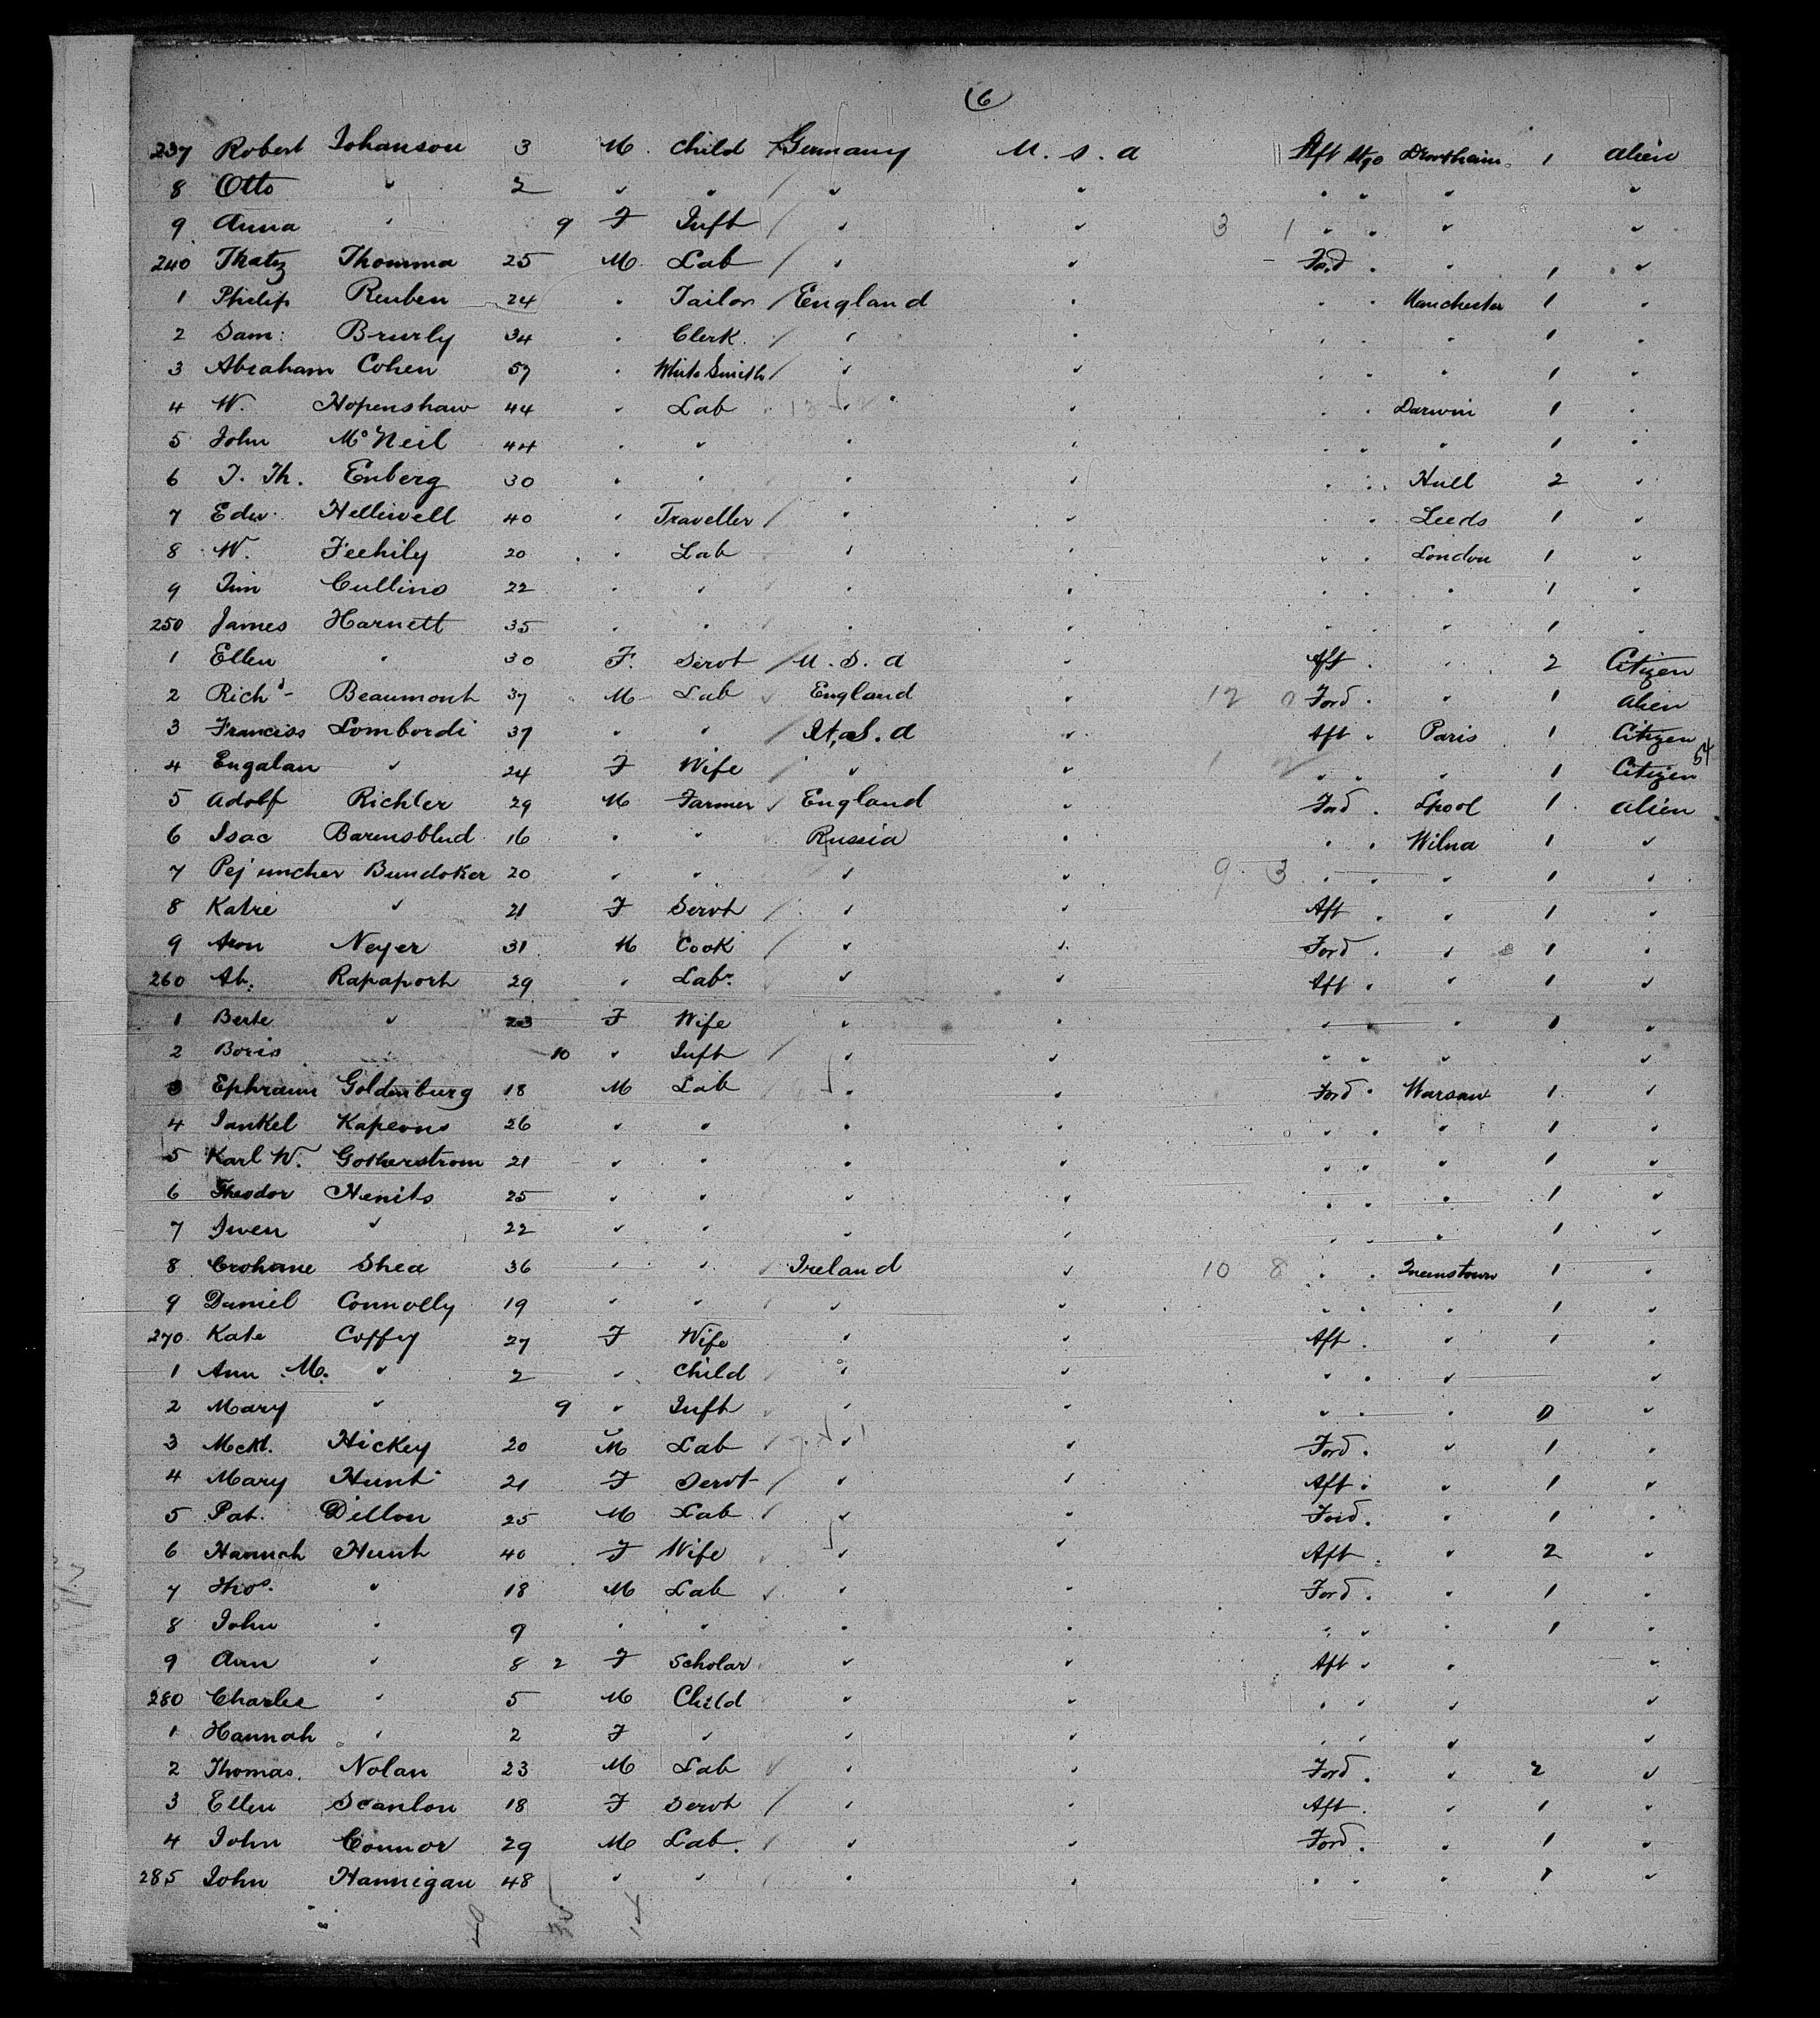 6
237 Robert Johanson 3 M. Child Germany U. S. a Aft Stge Drontheim 1 alien
8 Otto " 2 " " " " " " " "
9 Anna " 9 F Inft " " 3 1 " " " "
240 Thatz Thomma 25 M. Lab " " Ford " " 1 "
1 Philip Reuben 24 " Tailor England " " " Manchester 1 "
2 Sam: Brurly 34 " Clerk. " " " " 1 "
3 Abraham Cohen 57 " White Smith " " " " " 1 "
4 W. Hopenshaw 44 " Lab " " " " Darwin 1 "
5 John McNeil 44 " " " " " " " 1 "
6 J. Th. Enberg 30 " " " " " " Hull 2 "
7 Edw. Helliwell 40 " Traveller " " " " Leeds 1 "
8 W. Feehily 20 " Lab " " " " London 1 "
9 Jim Cullins 22 " " " " " " " 1 "
250 James Harnett 35 " " " " " " " 1 "
1 Ellen " 30 F. Servt U. S. a " Aft " " 2 Citizen
2 Richd Beaumont 37 M Lab England " 12 0 Ford " " 1 alien
3 Franciss Lombordi 37 " " U. S. a " Aft " Paris 1 Citizen
4 Engalan " 24 F Wife " " 1 2 " " " 1 Citizen 54
5 Adolf Richler 29 M Farmer England " Ford " Lpool 1 alien
6 Isac Barinsblud 16 " " Russia " " " Wilna 1 "
7 Pej uncher Bundoker 20 " " " " 9 3 " " " 1 "
8 Katre " 21 F Servt " " Aft " " 1 "
9 Aron Neyer 31 M Cook " " Ford " " 1 "
260 Ab. Rapaport 29 " Labr. " " Aft " " 1 "
1 Berte " 23 F Wife " " " " " 1 "
2 Boris " 10 " Inft " " " " " "
3 Ephraim Goldenburg 18 M Lab " " Ford " Warsaw 1 "
4 Jankel Kapeons 26 " " " " " " " 1 "
5 Karl W. Gotherstrom 21 " " " " " " " 1 "
6 Theodor Henits 25 " " " " " " " 1 "
7 Swen " 22 " " " " " " " 1 "
8 Crohane Shea 36 " " Ireland " 10 8 " " Queenstown 1 "
9 Daniel Connolly 19 " " " " " " " 1 "
270 Kate Coffey 27 F Wife " " Aft " " 1 "
1 Ann M. " 2 " Child " " " " " "
2 Mary " 9 " Inft " " " " " 0 "
3 Mckl. Hickey 20 M Lab " " Ford " " 1 "
4 Mary Hunt 21 F Servt " " Aft " " 1 "
5 Pat. Dillon 25 M Lab " " Ford " " 1 "
6 Hannah Hunt 40 F Wife " " Aft " " 2 "
7 Thos. " 18 M Lab " " Ford " " 1 "
8 John " 9 " " " " " " " 1 "
9 Ann " 8 2 F Scholar " " Aft " " "
280 Charles " 5 M Child " " " " " "
1 Hannah " 2 F " " " " " " "
2 Thomas. Nolan 23 M Lab " " Ford " " 2 "
3 Ellen Scanlon 18 F Servt " " Aft " " 1 "
4 John Connor 29 M Lab. " " Ford " " 1 "
285 John Hannigan 48 " " " " " " " 1 "